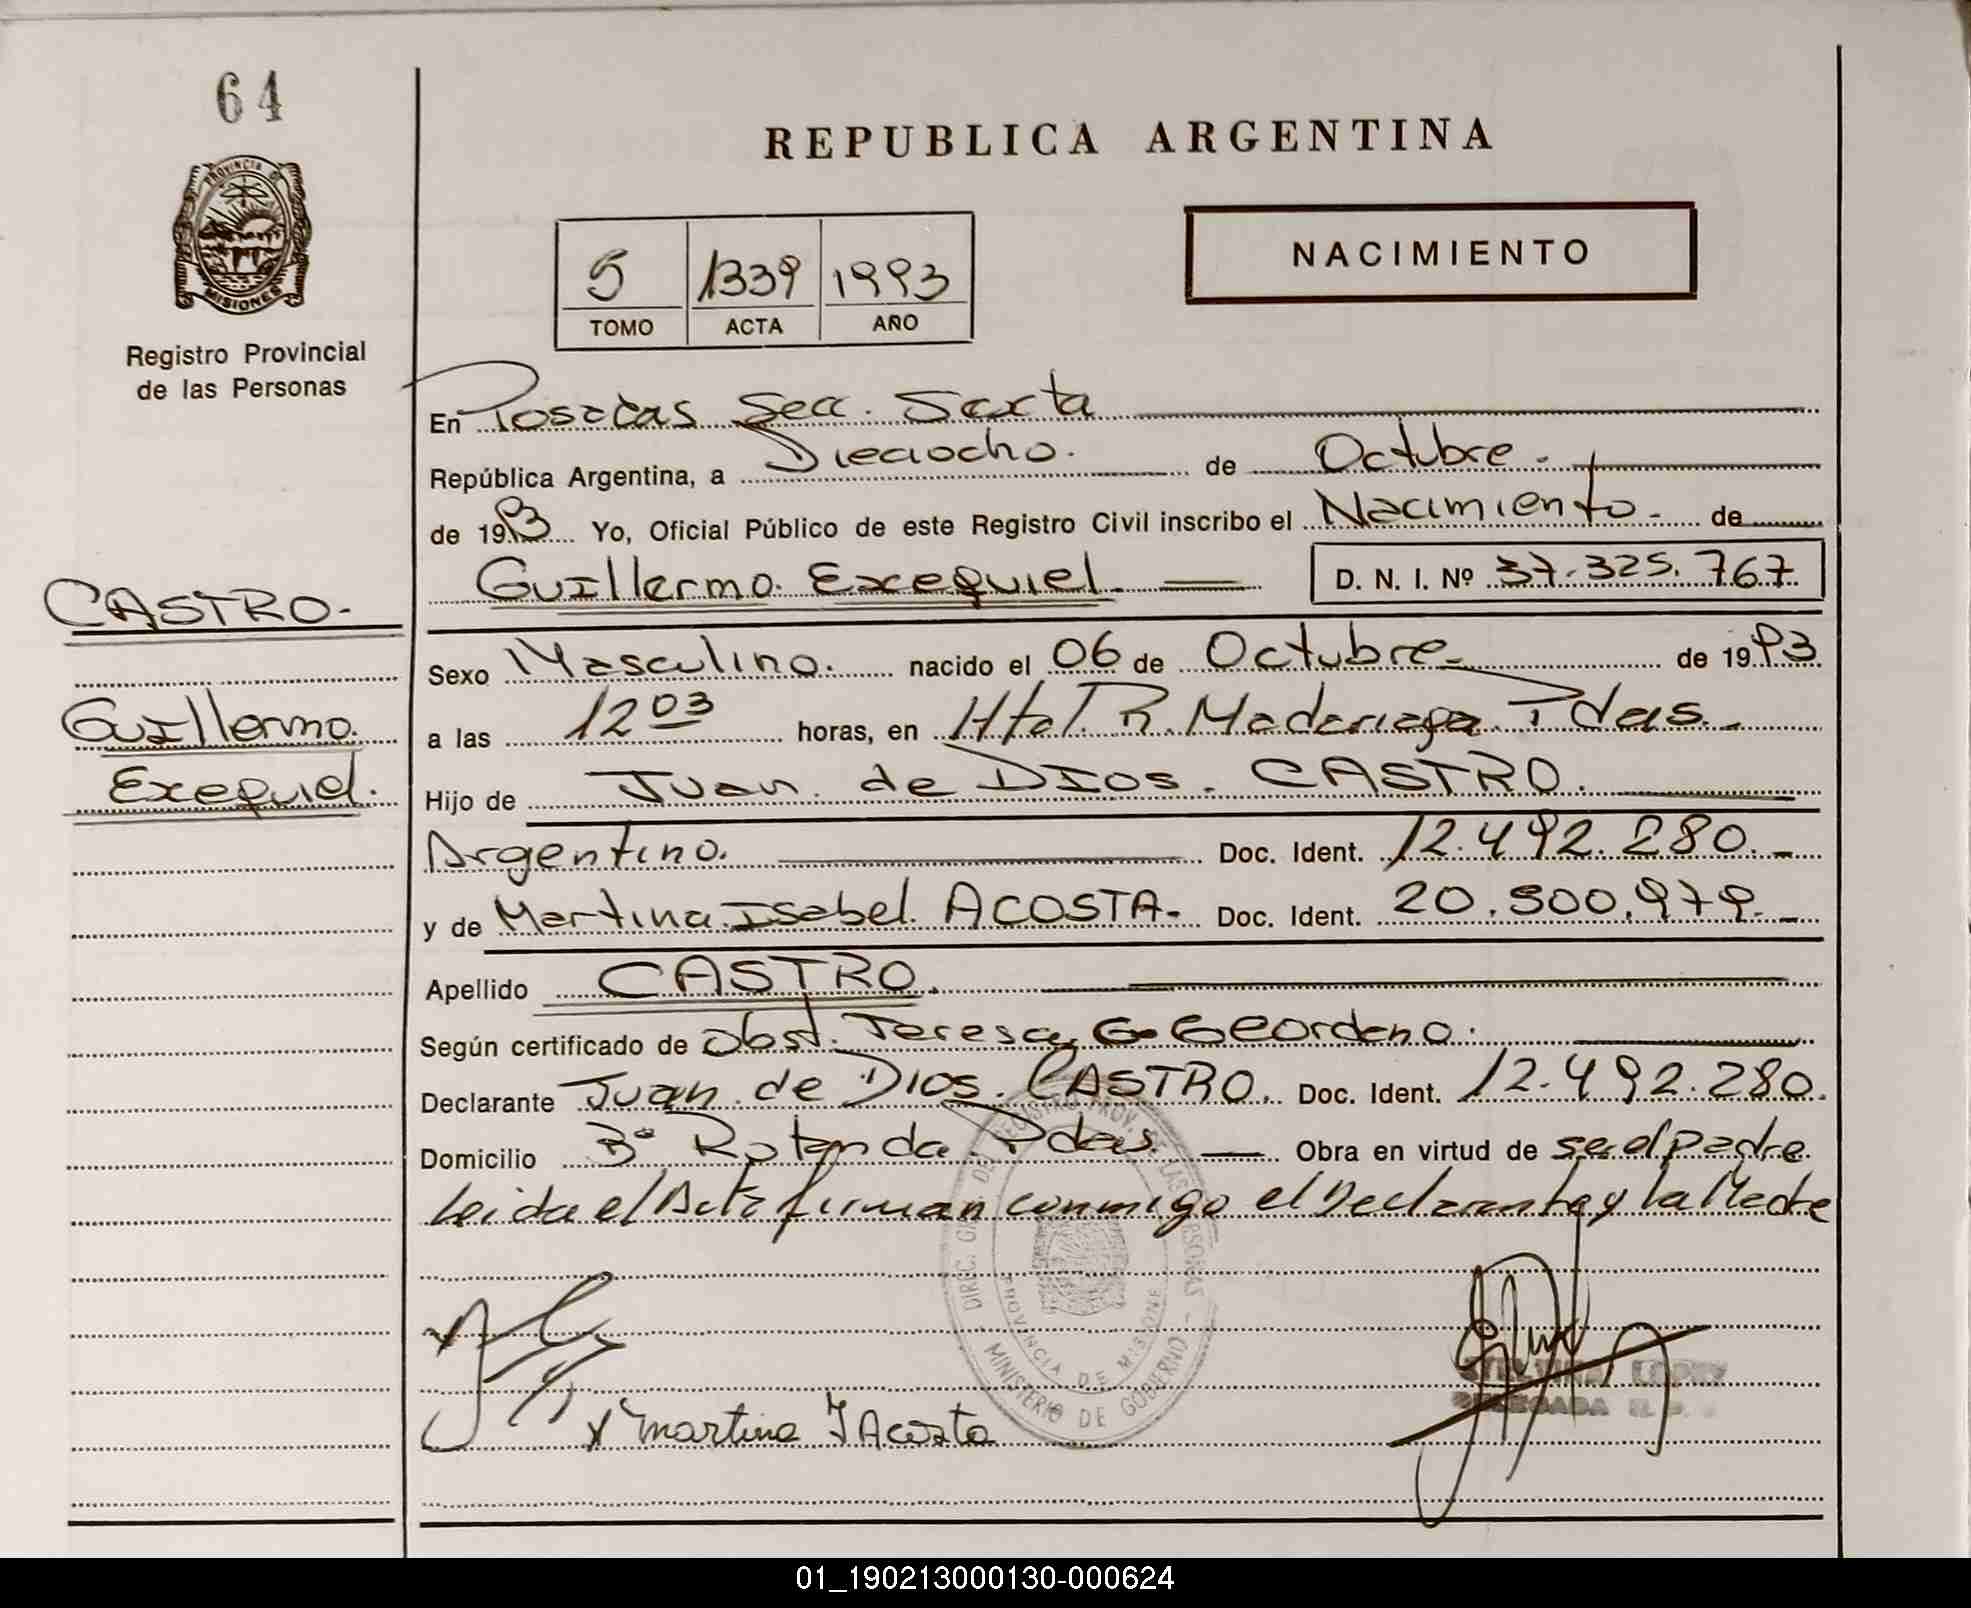 64
REPUBLICA ARGENTINA
PROVINCIA DE
MISIONES
Registro Provincial
de las Personas
NACIMIENTO
5 1339 1993
TOMO ACTA AÑO
En Posadas Secc. Sexta
República Argentina, a Dieciocho. de Octubre.
de 1993 Yo, Oficial Público de este Registro Civil inscribo el Nacimiento. de
Guillermo. Exequiel. D. N. I. Nº 37.325.767
CASTRO.
Guillermo.
Exequiel.
Sexo Masculino. nacido el 06 de Octubre. de 1993
a las 12 03 horas, en Htal. R. Madariaga Pdas.
Hijo de Juan de Dios. CASTRO.
Argentino. Doc. Ident. 12.492.280.
y de Martina Isabel. ACOSTA. Doc. Ident. 20.500.979.
Apellido CASTRO.
Según certificado de Obst. Teresa G.
Declarante Juan de Dios. CASTRO. Doc. Ident. 12.492.280.
Domicilio Bº Rotonda Pdas. Obra en virtud de ser el padre.
Leida el Acta firman conmigo el Declarante y la Madre
DIREC. GRAL. DEL REGISTRO PROV. DE LAS PERSONAS
PROVINCIA DE MISIONES
MINISTERIO DE GOBIERNO
x Martina I Acosta
LOPEZ
DELEGADA
01_190213000130-000624